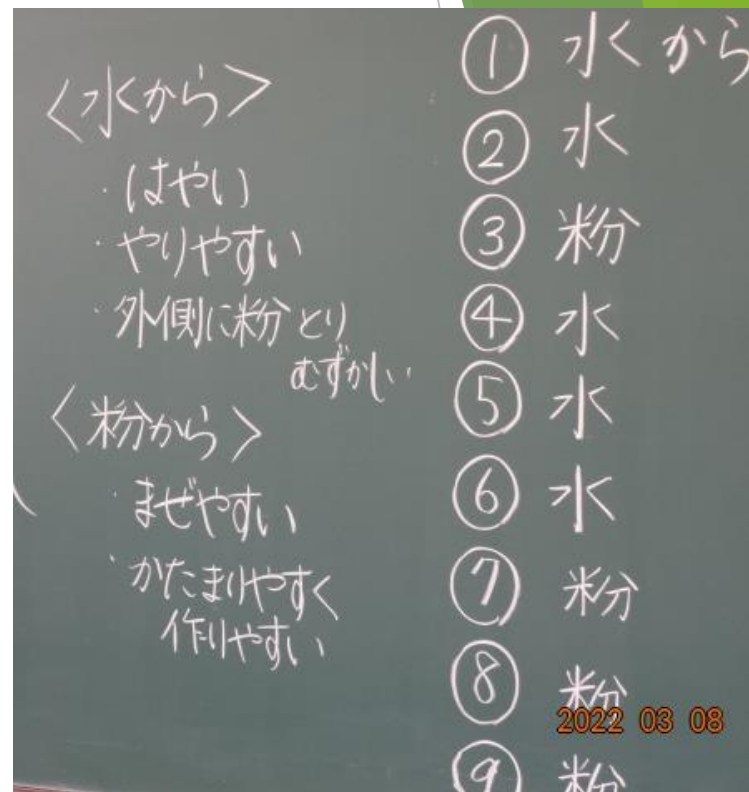 <水から>
・はやい
・やりやすい
・外側に粉とり
むずかしい
<粉から>
・まぜやすい
・かたまりやすく
作りやすい
① 水から
② 水
③ 粉
④ 水
⑤ 水
⑥ 水
⑦ 粉
⑧ 粉
⑨ 粉
2022 03 08